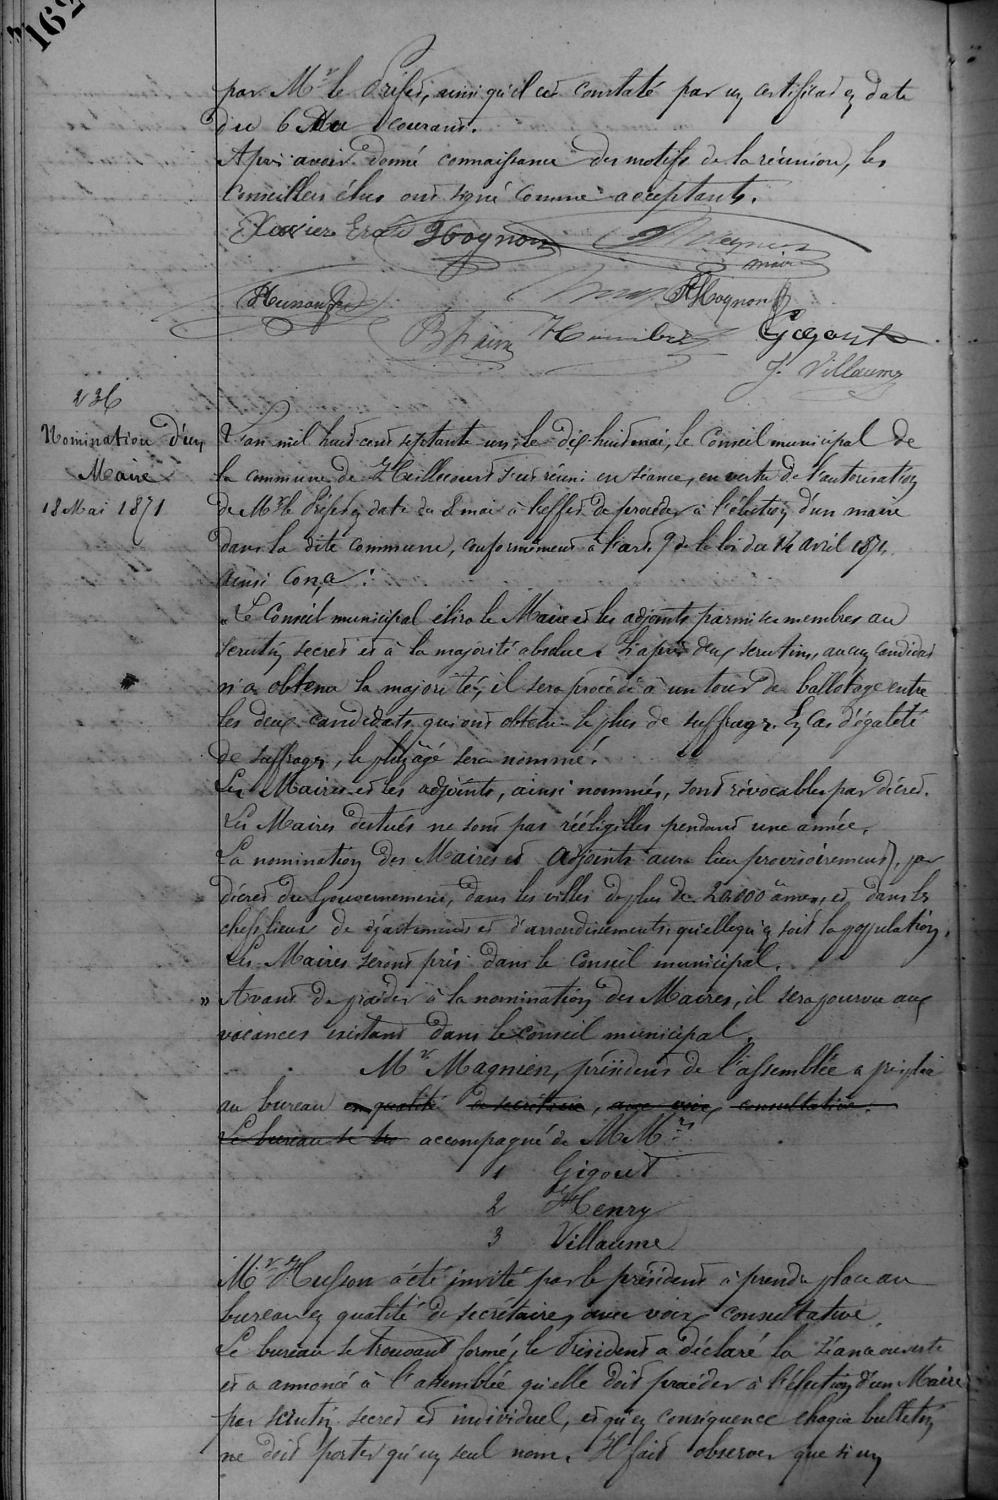 162
par Mr le Préfet, ainsi qu'il est constaté par un certificat en date
du 6 Mai courant.
Après avoir donné connaissance des motifs de la réunion, les
Conseillers élus ont signé comme acceptants.
Xavier Erard Hognon Magnien
maire
Husson Hognon
Humbert Gigout
J. Villaume
236
Nomination d'un
Maire
18 Mai 1871
L'an mil huit cent septante un, le dix huit mai, le Conseil municipal de
la commune de Heillecourt s'est réuni en séance, en vertu de l'autorisation
de Mr le Préfet en date du 8 mai à l'effet de procéder à l'élection d'un maire
dans la dite commune, conformément à l'art. 9 de la loi du 14 avril 1871,
ainsi conçu :
« Le Conseil municipal élira le Maire et les adjoints parmi ses membres au
scrutin secret et à la majorité absolue. Si après deux scrutins, aucun candidat
n'a obtenu la majorité, il sera procédé à un tour de ballotage entre
les deux candidats qui ont obtenu le plus de suffrages. En cas d'égalité
de suffrages, le plus âgé sera nommé.
Les Maires et les adjoints, ainsi nommés, sont révocables par décret.
Les Maires destitués ne sont pas rééligibles pendant une année.
La nomination des Maires et adjoints aura lieu provisoirement, par
décret du Gouvernement, dans les villes de plus de 20.000 âmes, et dans les
chefs lieux de départements et d'arrondissements, quelle qu'en soit la population.
Les Maires seront pris dans le Conseil municipal.
» Avant de procéder à la nomination des Maires, il sera pourvu aux
vacances existant dans le conseil municipal.
Mr Magnien, président de l'assemblée a pris place
au bureau en qualité de secrétaire, avec voix consultative.
Le bureau se accompagné de M Mrs
1 Gigout
2 Henry
3 Villaume
Mr Husson a été invité par le président à prendre place au
bureau en qualité de secrétaire, avec voix consultative.
Le bureau se trouvant formé, le Président a déclaré la séance ouverte
et a annoncé à l'assemblée qu'elle doit procéder à l'élection d'un Maire
par scrutin secret et individuel, et qu'en conséquence chaque bulletin
ne doit porter qu'un seul nom. Il fait observer que si un